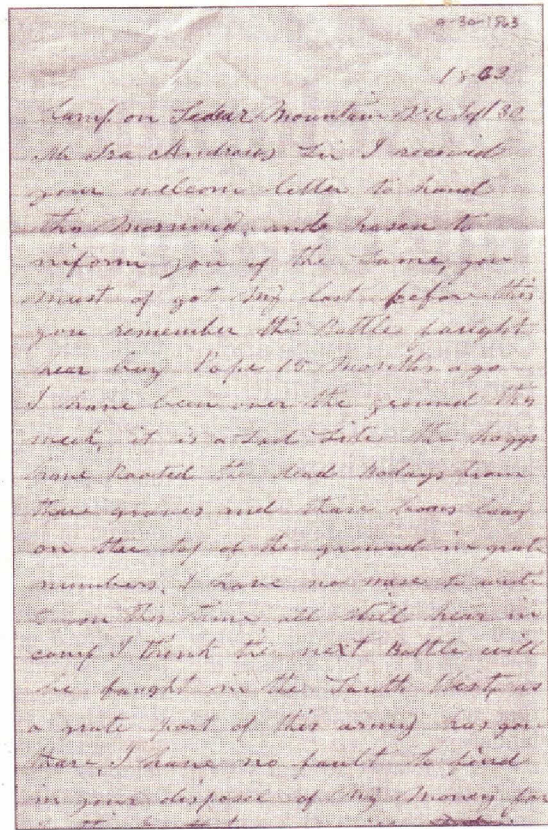 9-30-1863
1863
Camp on Sedear Mountain Va Sept 30
Mr Ira Andrews Sir I receivd
your welcom letter to hand
this Morning, and hasen to
niform you of the Same, you
must of got My last befor this
you remember the Battle faught
hear buy Pope 15 Months ago
I have been over the ground this
week, it is a Sad Site the hoggs
have Rooted the dead Bodays from
thare graves and thare bones lay
on the top of the ground in grate
numbers. I have no more to write
on this time all still hear in
camp I think the next Battle will
be faught in the South West, as
a grate part of this army has gon
thare, I have no fault to find
in your dispose of My Money for